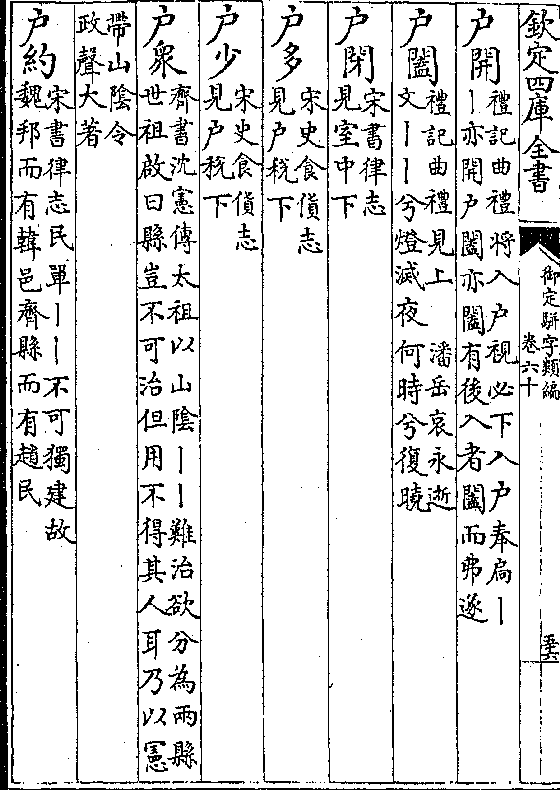 欽定四庫全書
御定駢字類編
卷六十
五十六
户開
禮記曲禮將入户視必下入户奉扃丨
丨亦開户闔亦闔有後入者闔而弗遂
户闔
禮記曲禮見上 潘岳哀永逝
文丨丨兮燈滅夜何時兮復曉
户閉
宋書律志
見室中下
户多
宋史食貨志
見户税下
户少
宋史食貨志
見户税下
户衆
齊書沈憲傳太祖以山陰丨丨難治欲分為兩縣
世祖啟曰縣豈不可治但用不得其人耳乃以憲
帶山陰令
政聲大著
户約
宋書律志民單丨丨不可獨建故
魏邦而有韓邑齊縣而有趙民